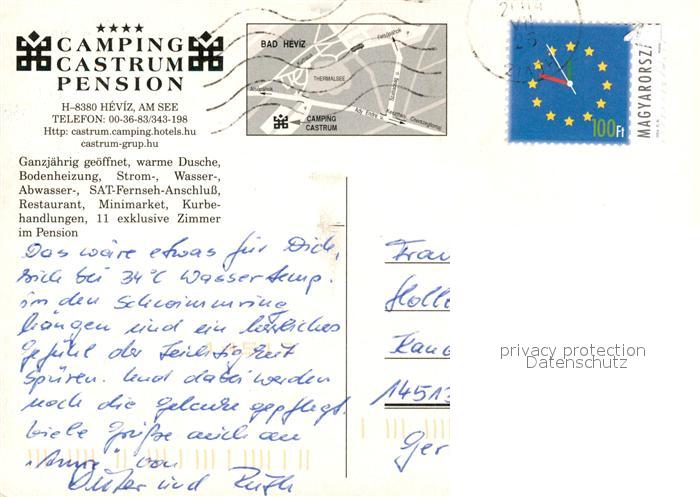 ★★★★
CAMPING
CASTRUM
PENSION
H–8380 HÉVÍZ, AM SEE
TELEFON: 00-36-83/343-198
Http: castrum.camping.hotels.hu
castrum-grup.hu
Ganzjährig geöffnet, warme Dusche,
Bodenheizung, Strom-, Wasser-,
Abwasser-, SAT-Fernseh-Anschluß,
Restaurant, Minimarket, Kurbe-
handlungen, 11 exklusive Zimmer
im Pension
BAD HÉVÍZ
THERMALSEE
CAMPING
CASTRUM
Ady Endre u.
100Ft
MAGYARORSZ
Das wäre etwas für Dich,
sich bei 34°C Wassertemp.
in den Schwimmring
hängen und ein herrliches
Gefühl der Leichtigkeit
spüren. Und dabei werden
noch die Gelenke gepflegt.
Viele Grüße auch an
von
und Ruth
Frau
Holl
Kan
14513
Ger
privacy protection
Datenschutz